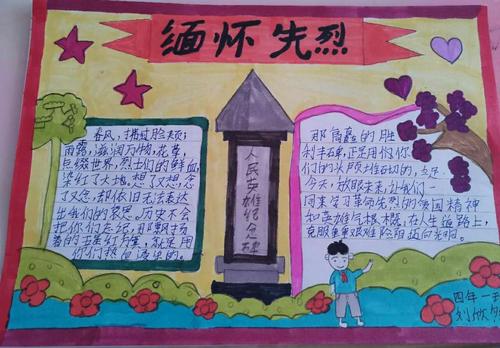 缅怀先烈
春风，拂过脸颊；
雨露，滋润万物，花草，
点缀世界，烈士们的鲜血，
染红了大地，想了又想，念
了又念，却依旧无法表达
出我们的哀思。历史不会
把你们忘记，那飘扬
着的五星红旗，就是用
你们热血染成的。
人民英雄纪念碑
那矗矗的胜
利丰碑，正是用你
们的头颅堆砌的，立足
今天，放眼未来，让我们一
同来学习革命先烈的爱国精神
如英雄气概，在人生道路上，
克服重重艰难险阻迈向光明。
四年一
刘欣